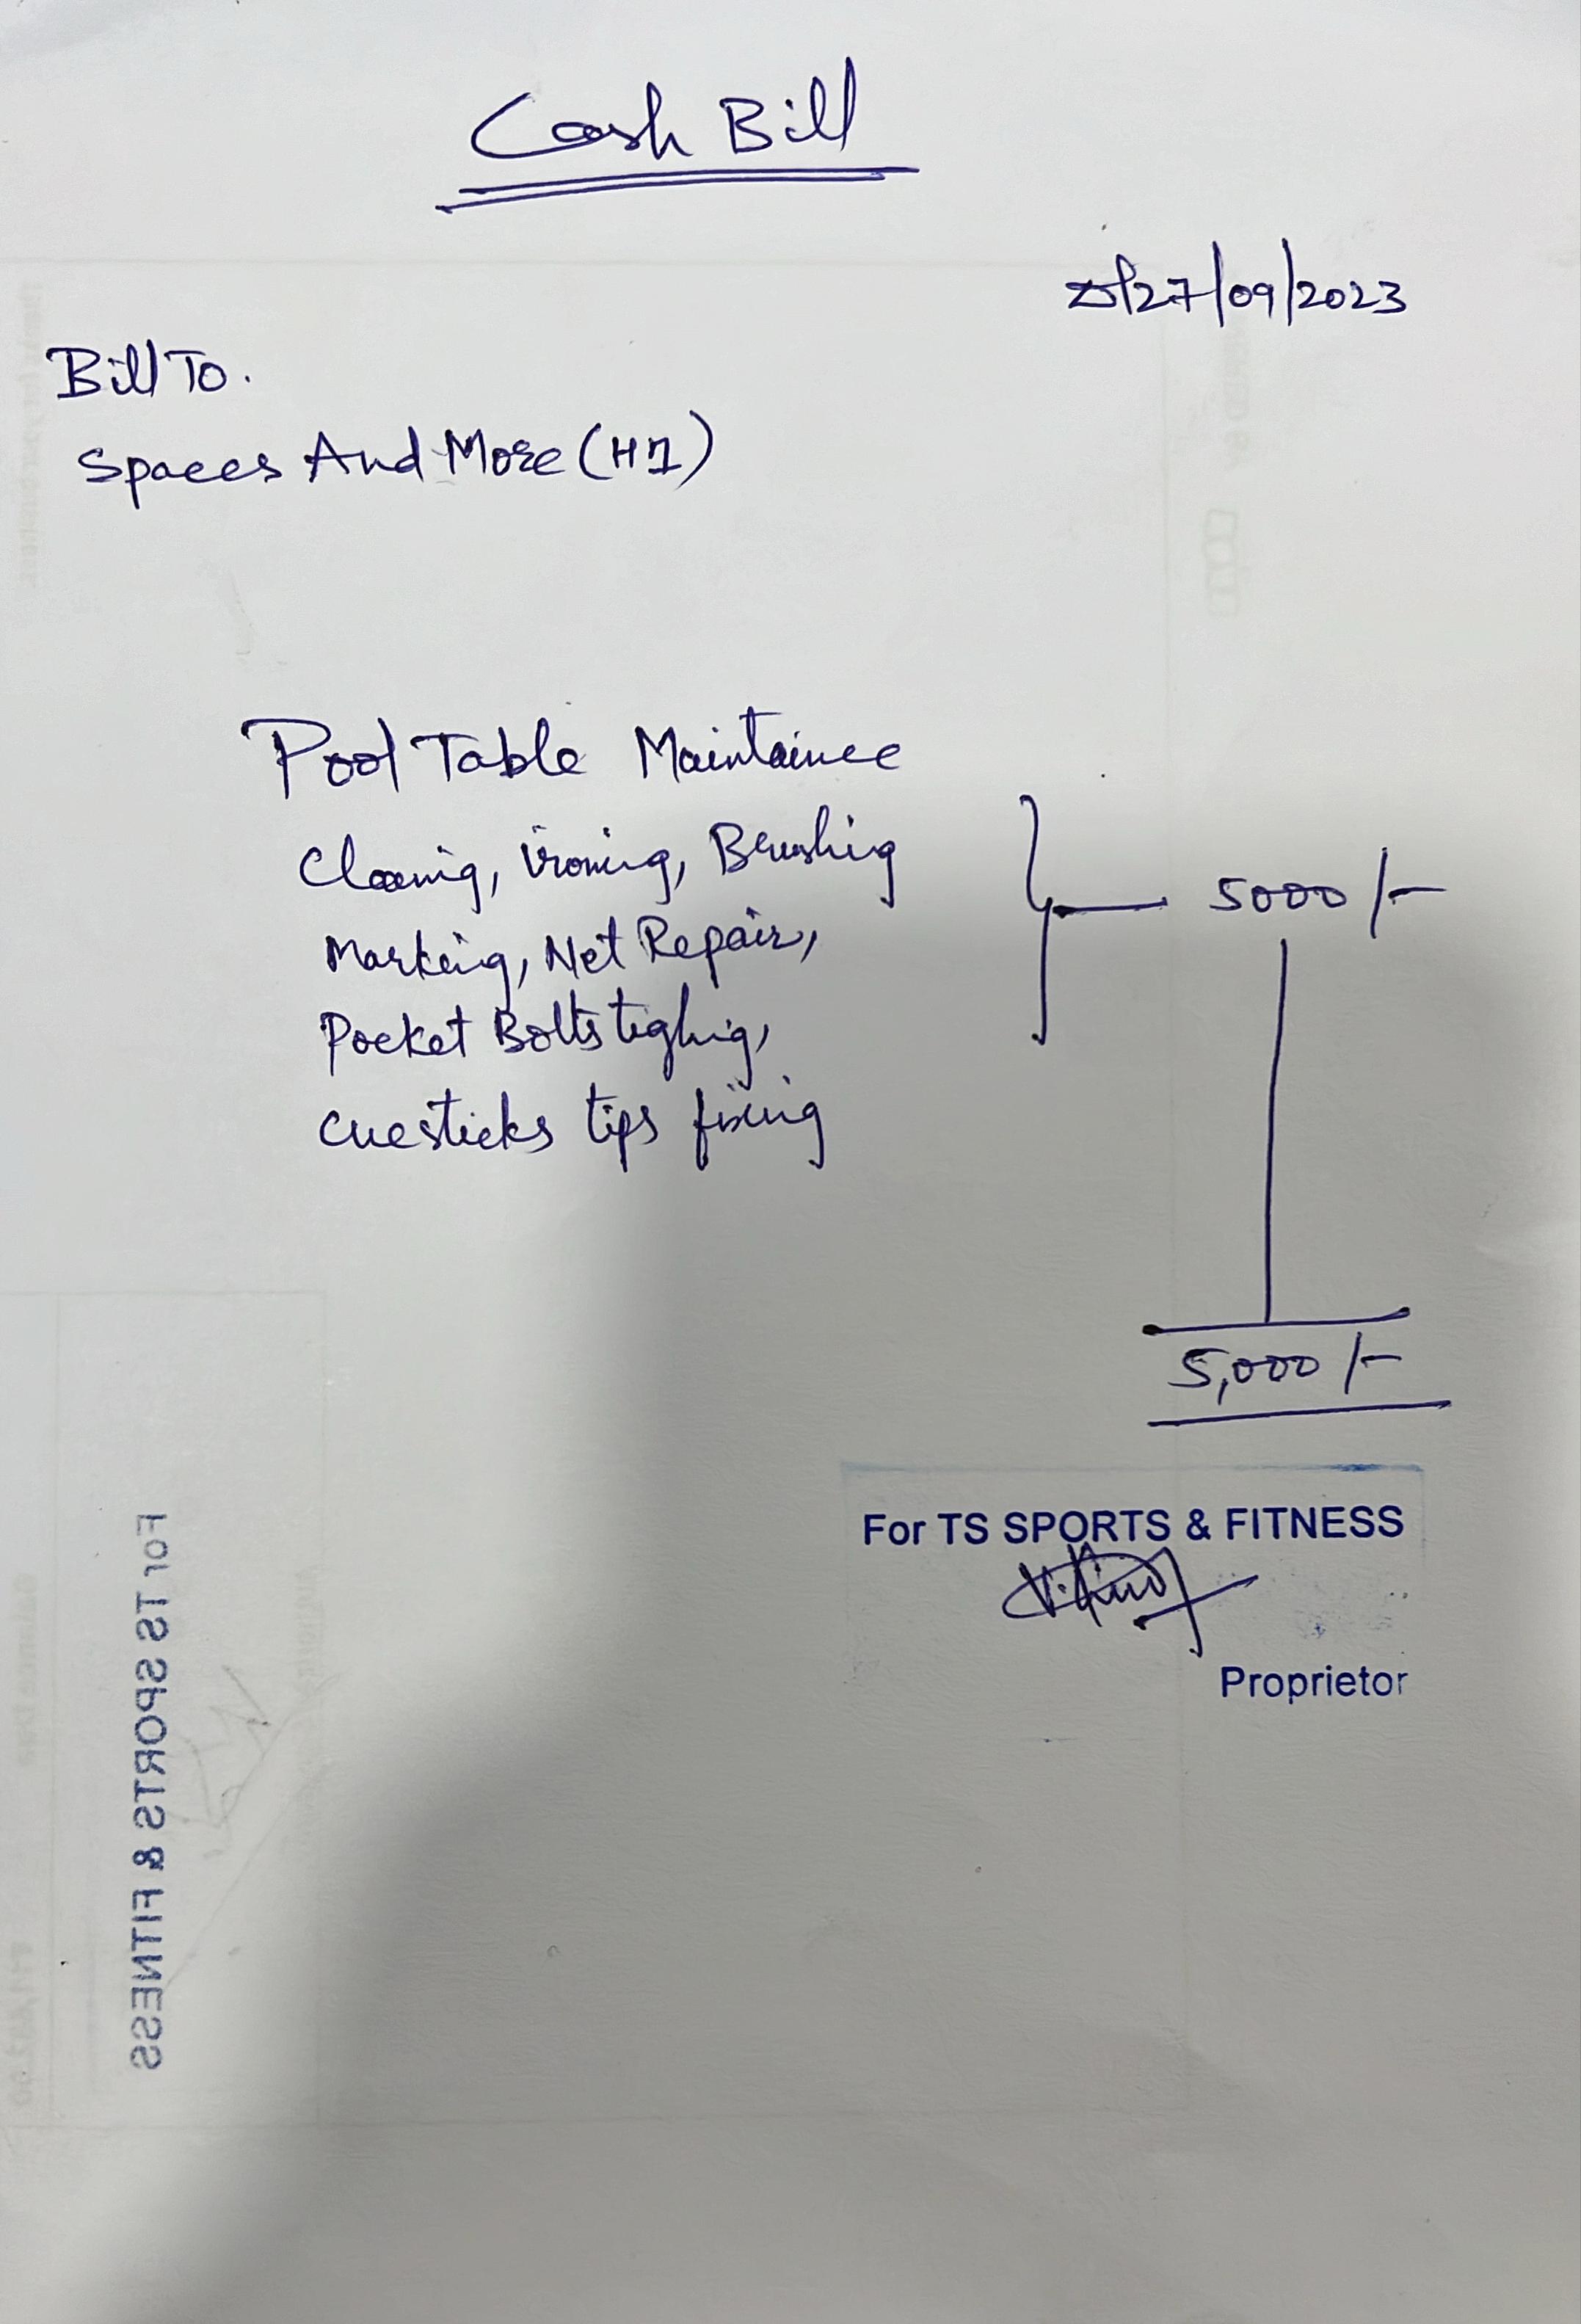 Cash Bill
Dt 27/09/2023
Bill To.
Spaces And More (H1)
Pool Table Maintaince
Cleanig, ironing, Brushing
Marking, Net Repair,
Pocket Bolts tighig,
cuesticks tips fixing
5000/-
5,000/-
For TS SPORTS & FITNESS
Proprietor
For TS SPORTS & FITNESS